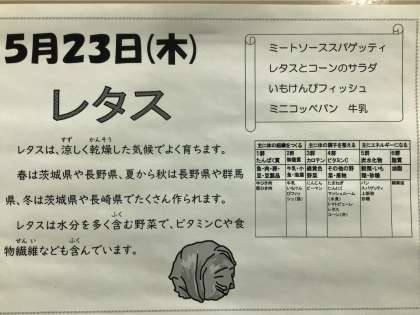 5月23日(木)
ミートソーススパゲッティ
レタスとコーンのサラダ
いもけんぴフィッシュ
ミニコッペパン 牛乳
レタス
レタスは、涼しく乾燥した気候でよく育ちます。
春は茨城県や長野県、夏から秋は長野県や群馬
県、冬は茨城県や長崎県でたくさん作られます。
レタスは水分を多く含む野菜で、ビタミンCや食
物繊維なども含んでいます。
主に体の組織をつくる 主に体の調子を整える 主にエネルギーになる
1群 2群 3群 4群 5群 6群
たんぱく質 無機質 カロテン ビタミンC 炭水化物 脂質